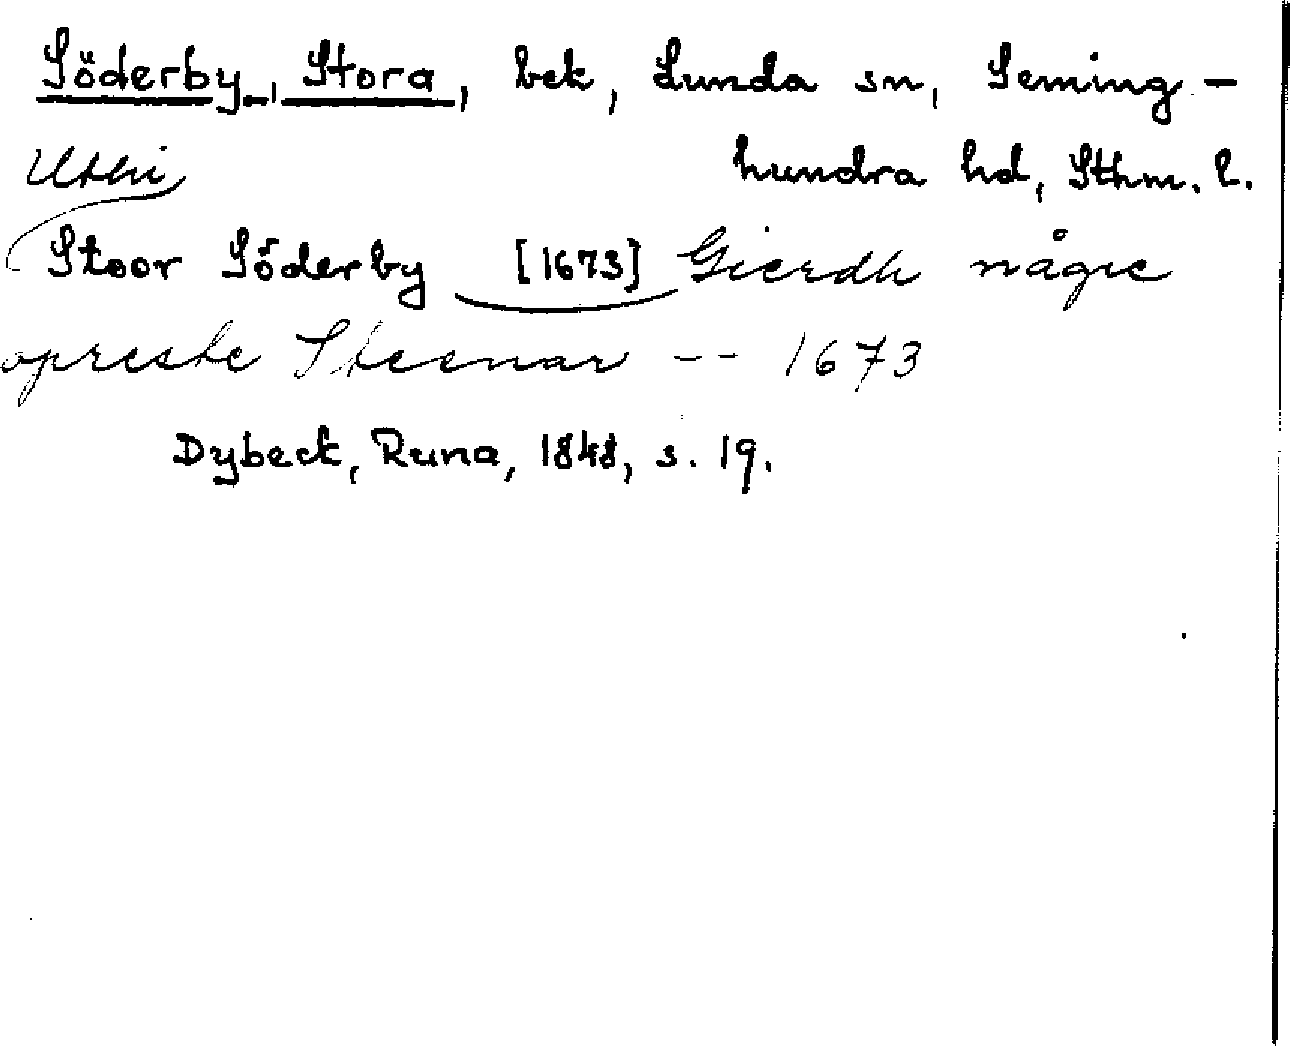 Söderby, Stora, bek, Lunda sn, Seming-
hundra hd, Sthm. l.
Uthi
Stoor Söderby [1673] Gierdh någre
opreste Steenar -- 1673
Dybeck, Runa, 1848, s. 19.